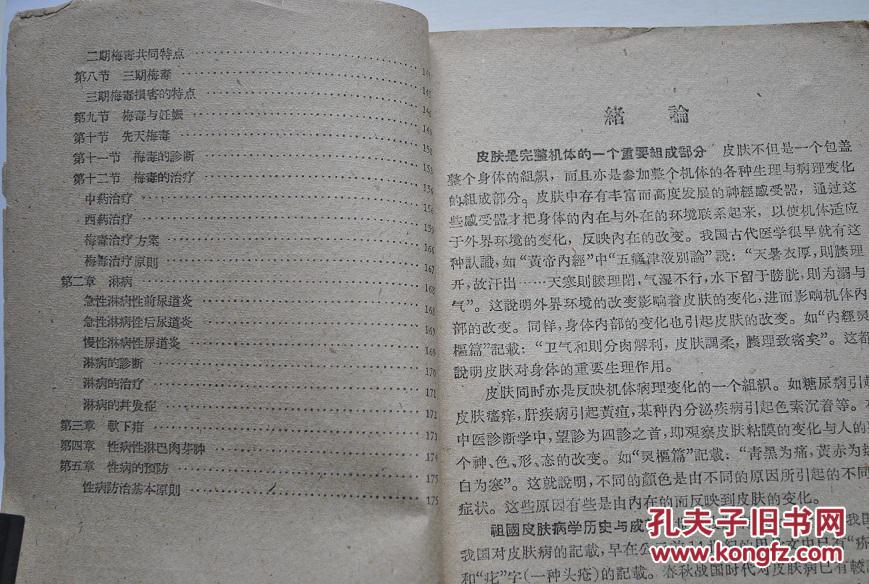 二期梅毒共同特点
第八节 三期梅毒
三期梅毒損害的特点
第九节 梅毒与妊娠
第十节 先天梅毒
第十一节 梅毒的診断
第十二节 梅毒的治疗
中药治疗
西药治疗
梅毒治疗方案
梅毒治疗原則 167
第二章 淋病 168
急性淋病性前尿道炎 168
急性淋病性后尿道炎
慢性淋病性尿道炎 169
淋病的診断 170
淋病的治疗 171
淋病的并发症 172
第三章 軟下疳
第四章 性病性淋巴肉芽肿
第五章 性病的預防 175
性病防治基本原則 175
緒 論
皮肤是完整机体的一个重要組成部分 皮肤不但是一个包盖
整个身体的組織，而且亦是参加整个机体的各种生理与病理变化
的組成部分。皮肤中存有丰富而高度发展的神經感受器，通过这
些感受器才把身体的內在与外在的环境联系起来，以使机体适应
于外界环境的变化，反映內在的改变。我国古代医学很早就有这
种认識，如“黃帝內經”中“五癃津液別論”說：“天暑衣厚，則腠理
开，故汗出……天寒則腠理閉，气湿不行，水下留于膀胱，則为溺与
气”。这說明外界环境的改变影响着皮肤的变化，进而影响机体內
部的改变。同样，身体內部的变化也引起皮肤的改变。如“內經灵
樞篇”記載：“卫气和則分肉解利，皮肤調柔，腠理致密矣”。这都
說明皮肤对身体的重要生理作用。
皮肤同时亦是反映机体病理变化的一个組織。如糖尿病引起
皮肤瘙痒，肝疾病引起黃疸，某种內分泌疾病引起色素沉着等。在
中医診断学中，望診为四診之首，即观察皮肤粘膜的变化与人的
个神、色、形、态的改变。如“灵樞篇”記載：“青黑为痛，黃赤为
白为寒”。这就說明，不同的顏色是由不同的原因所引起的不同
症状。这些原因有些是由內在的而反映到皮肤的变化。
祖國皮肤病学历史与成
我国对皮肤病的記載，早在公
和“疕”字(一种头疮)的記載。春秋战国时代对皮肤病已有較
孔夫子旧书网
www.kongfz.com